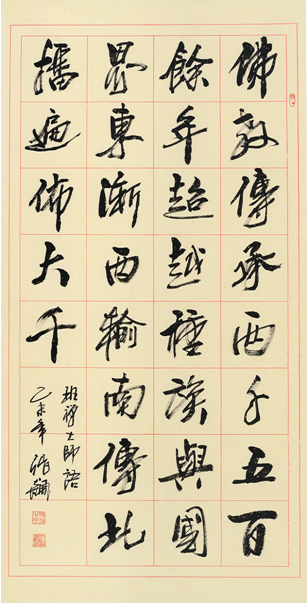 佛教傳承两千五百
餘年超越種族與國
界東漸西輸南傳北
播遍佈大千
班禪大師語
乙未年